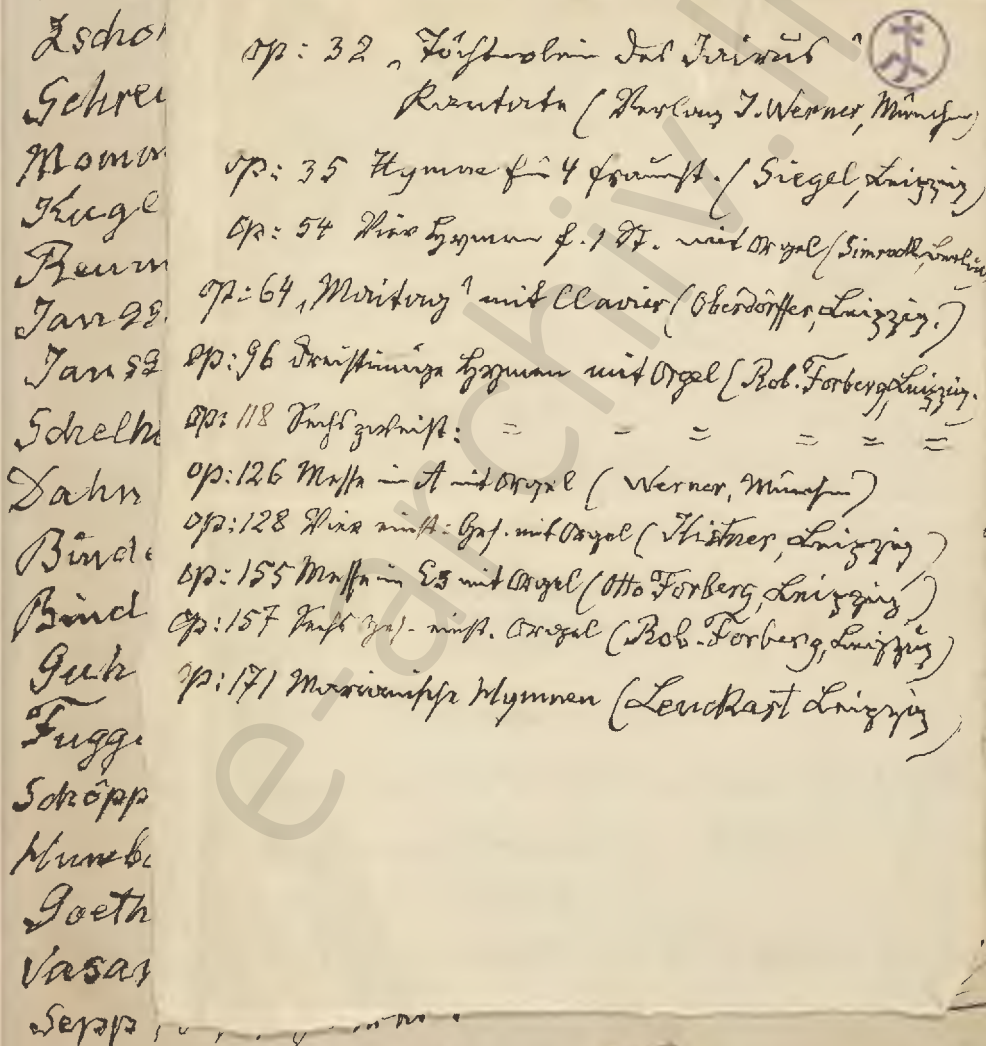 Zscho
Schrei
Momm
Kugl
Reum
Jansse
Janss
Schelh
Dahn
Binde
Bind
Guh
Fugge
Schöpp
Humbo
Goeth
Vasar
Sepp
op: 32 „Töchterlein des Jairus“
Kantate (Verlag J. Werner, München)
op: 35 Hymne für 4 frauenst. (Siegel, Leipzig)
op: 54 Vier Hymnen f. 1 St. mit Orgel (Simrock, Berlin
op: 64 „Maitag“ mit Clavier (Oberdörffer, Leipzig.)
op: 96 Dreistimmige Hymnen mit Orgel (Rob. Forberg, Leipzig.
op: 118 Sechs zweist: = = = = = =
op: 126 Messe in A mit Orgel (Werner, München)
op: 128 Vier einst: Ges. mit Orgel (Kistner, Leipzig)
op: 155 Messe in Es mit Orgel (Otto Forberg, Leipzig)
op: 157 Sechs Ges. einst. Orgel (Rob. Forberg, Leipzig)
op: 171 Marianische Hymnen (Leuckart Leipzig)
e-archiv.li